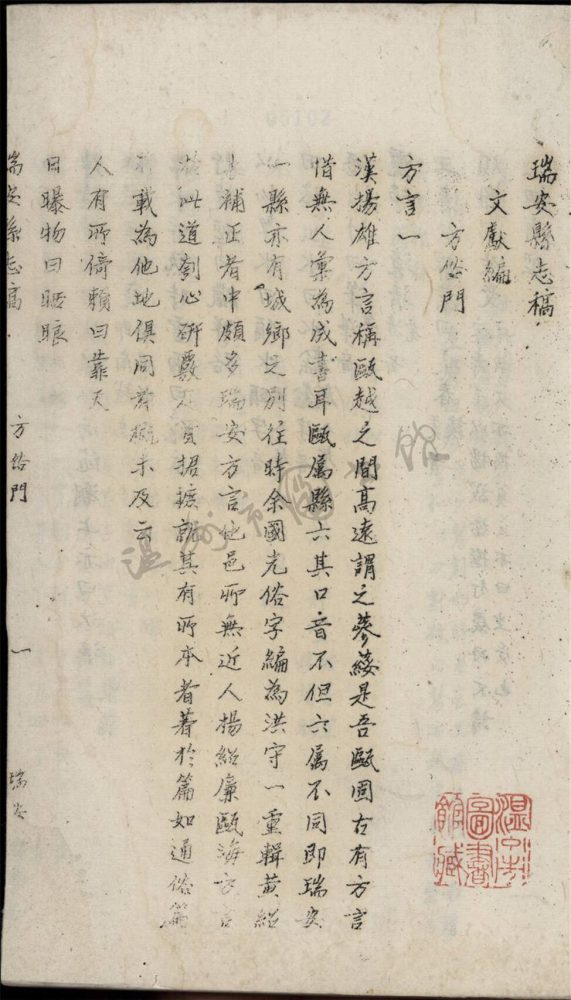 瑞安縣志稿
文獻編
方俗門
方言一
漢揚雄方言稱甌越之間高遠謂之蔘綏是吾甌固古有方言
惜無人彙為成書耳甌屬縣六其口音不但六屬不同即瑞安
一縣亦有城鄉之別往時余國光俗字編為洪守一重輯黃紹
補正者中頗多瑞安方言他邑所無近人楊紹廉甌海方言
於此道刳心研覈足資据摭就其有所本者著於篇如通俗篇
載為他地俱同者概未及云
人有所倚賴曰靠天
日曝物曰晒眼
瑞安縣志稿 方俗門 一 瑞安
溫州圖書館藏
溫州市圖書館